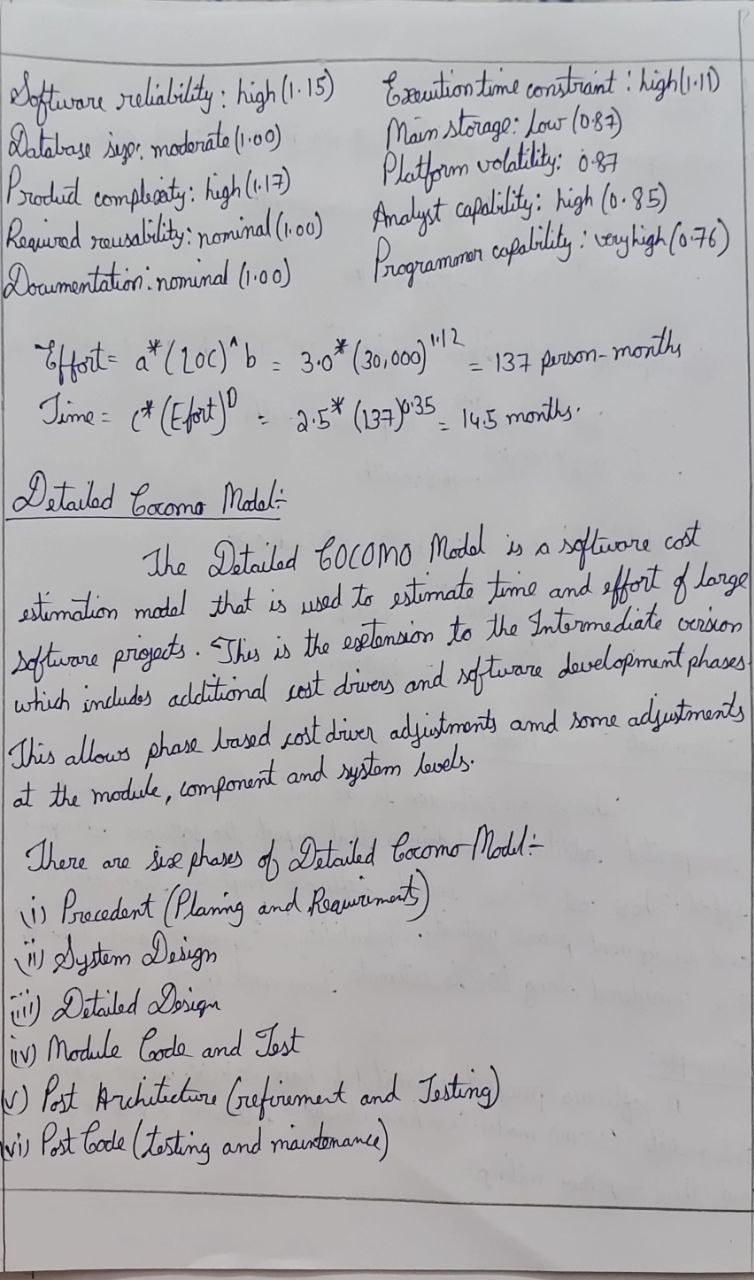 Software reliability: high (1.15)
Database size: moderate (1.00)
Product complexity: high (1.17)
Required reusability: nominal (1.00)
Documentation: nominal (1.00)
Execution time constraint: high (1.11)
Main storage: Low (0.87)
Platform volatility: 0.87
Analyst capability: high (0.85)
Programmer capability: very high (0.76)
Effort = a*(LOC)^b = 3.0*(30,000)^1.12 = 137 person-months
Time = c*(Efort)^D = 2.5*(137)^0.35 = 14.5 months.
Detailed Cocomo Model:-
The Detailed COCOMO Model is a software cost
estimation model that is used to estimate time and effort of large
software projects. This is the extension to the Intermediate version
which includes additional cost drivers and software development phases.
This allows phase based cost driver adjustments and some adjustments
at the module, component and system levels.
There are six phases of Detailed Cocomo Model:-
(i) Precedent (Planing and Requirements)
(ii) System Design
(iii) Detailed Design
(iv) Module Code and Test
(v) Post Architecture (refirement and Testing)
(vi) Post Code (testing and maintenance)